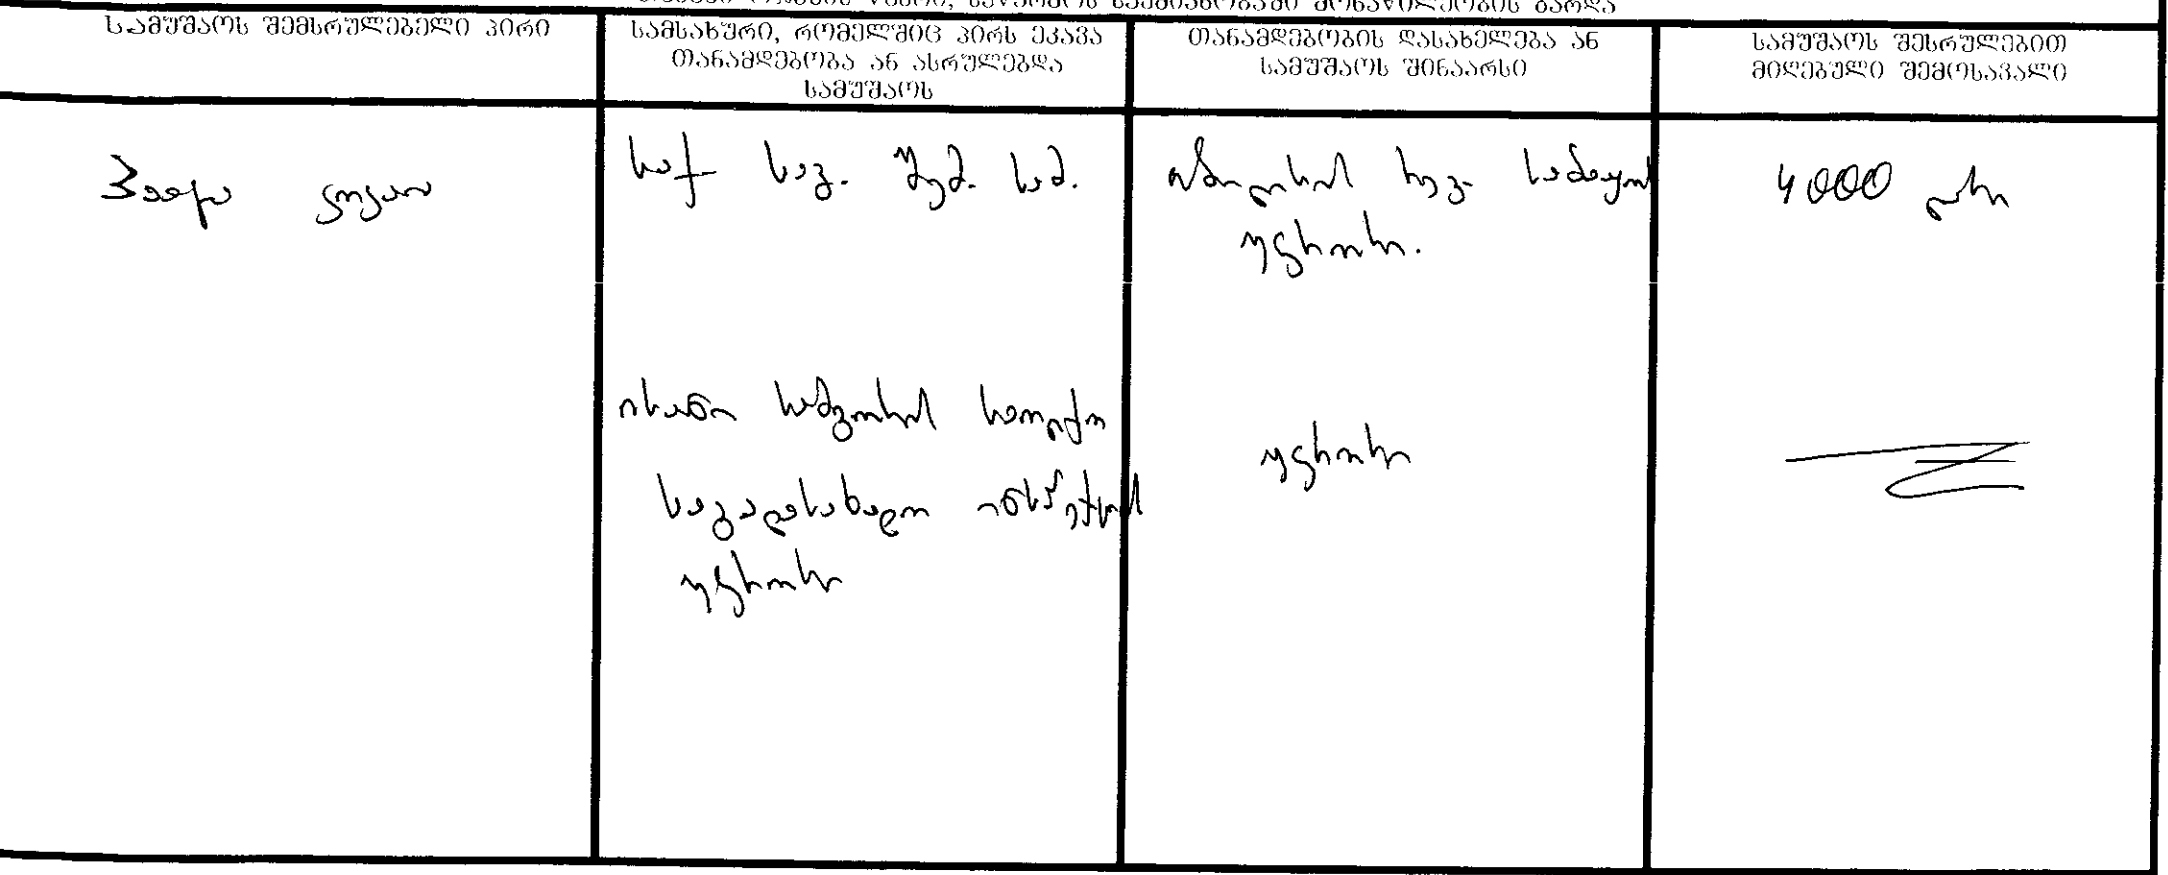 სამუშაოს შემსრულებელი პირი
სამსახური, რომელშიც პირს ეკავა
თანამდებობა ან ასრულებდა
სამუშაოს
თანამდებობის დასახელება ან
სამუშაოს შინაარსი
სამუშაოს შესრულებით
მიღებული შემოსავალი
პაატა
საქ საგ. შემ. სამ.
თბილისის რეგ.
უფროსი.
4000 ლარი
ისანი სამგორის
საგადასახადო ინსპექციის
უფროსი
უფროსი